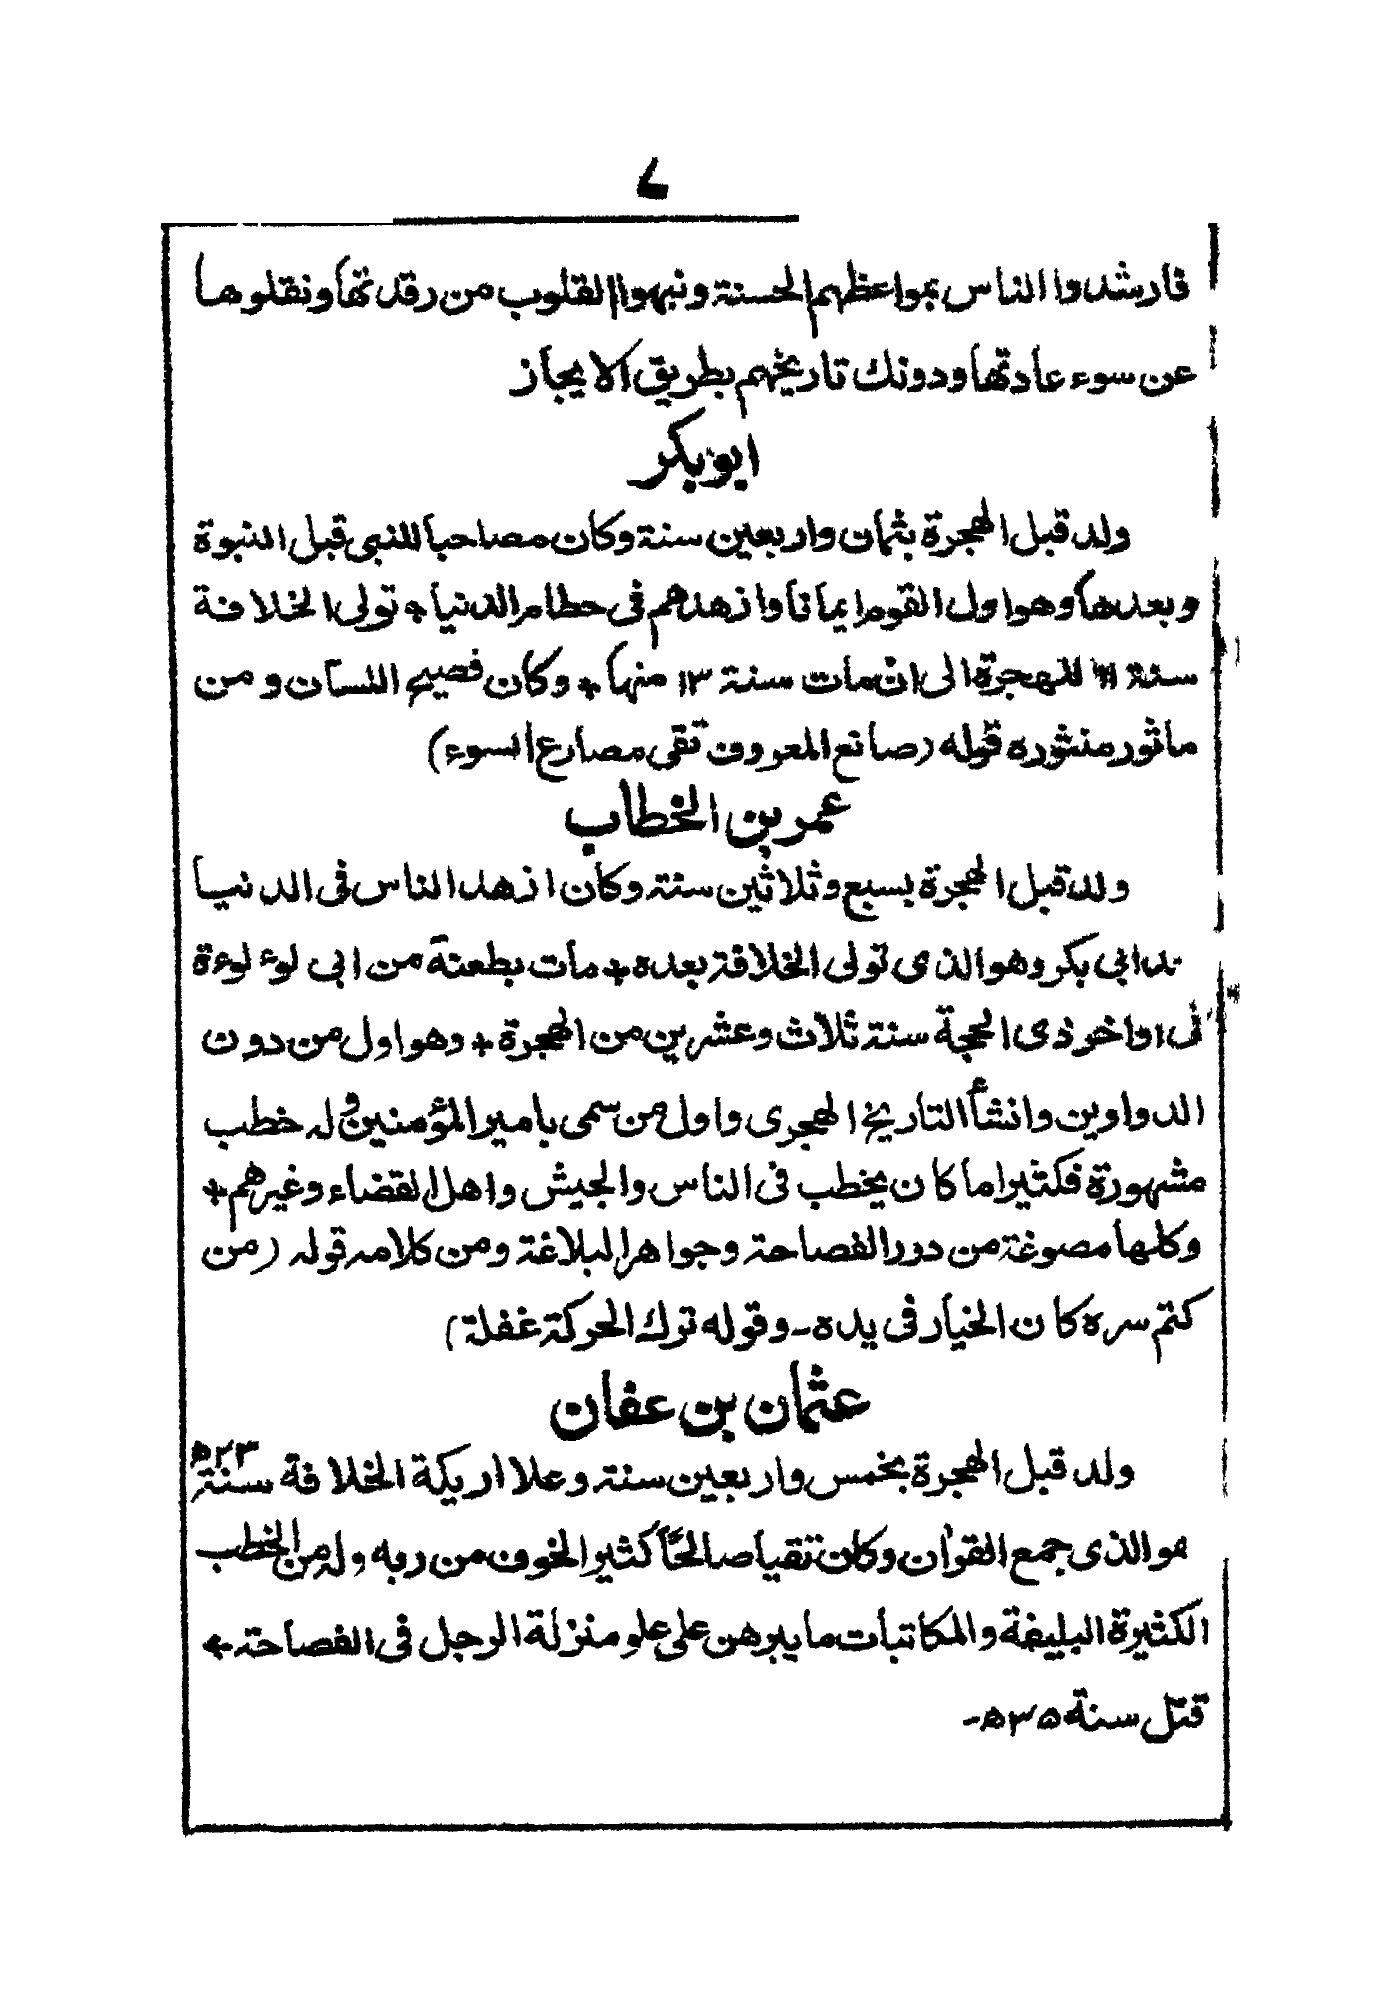 ٧
فارشدوا الناس بمواعظهم الحسنة ونبهوا القلوب من رقدتها ونقلوها
عن سوء عادتها ودونك تاريخهم بطريق الايجاز
ابو بكر
ولد قبل الهجرة بثمان واربعين سنة وكان مصاحبا للنبي قبل النبوة
وبعدها وهو اول القوم ايمانا وازهدهم في حطام الدنيا + تولى الخلافة
سنة ١١ للهجرة الى ان مات سنة ١٣ منها + وكان فصيح اللسان ومن
ماثور منثوره قوله (صانع المعروف تقى مصارع السوء)
عمر بن الخطاب
ولد قبل الهجرة بسبع وثلاثين سنة وكان ازهد الناس في الدنيا
بى بكر وهو الذى تولى الخلافة بعده + مات بطعنة من ابى لوء لوءة
فى اواخر ذى الحجة سنة ثلاث وعشرين من الهجرة + وهو اول من دون
الدواوين وانشأ التاريخ الهجرى واول من سمى بامير المؤمنين وله خطب
مشهورة فكثيرا ما كان يخطب فى الناس والجيش واهل القضاء وغيرهم +
وكلها مصوغة من درر الفصاحة وجواهر البلاغة ومن كلامه قوله (من
كتم سره كان الخيار فى يده - وقوله ترك الحركة غفلة)
عثمان بن عفان
ولد قبل الهجرة بخمس واربعين سنة وعلا اريكة الخلافة سنة ٢٣ھ
هو الذى جمع القرآن وكان تقيا صالحاً كثير الخوف من ربه وله من الخطب
الكثيرة البليغة والمكاتبات ما يبرهن على علو منزلة الرجل فى الفصاحة +
قتل سنة ٣٥ھ-